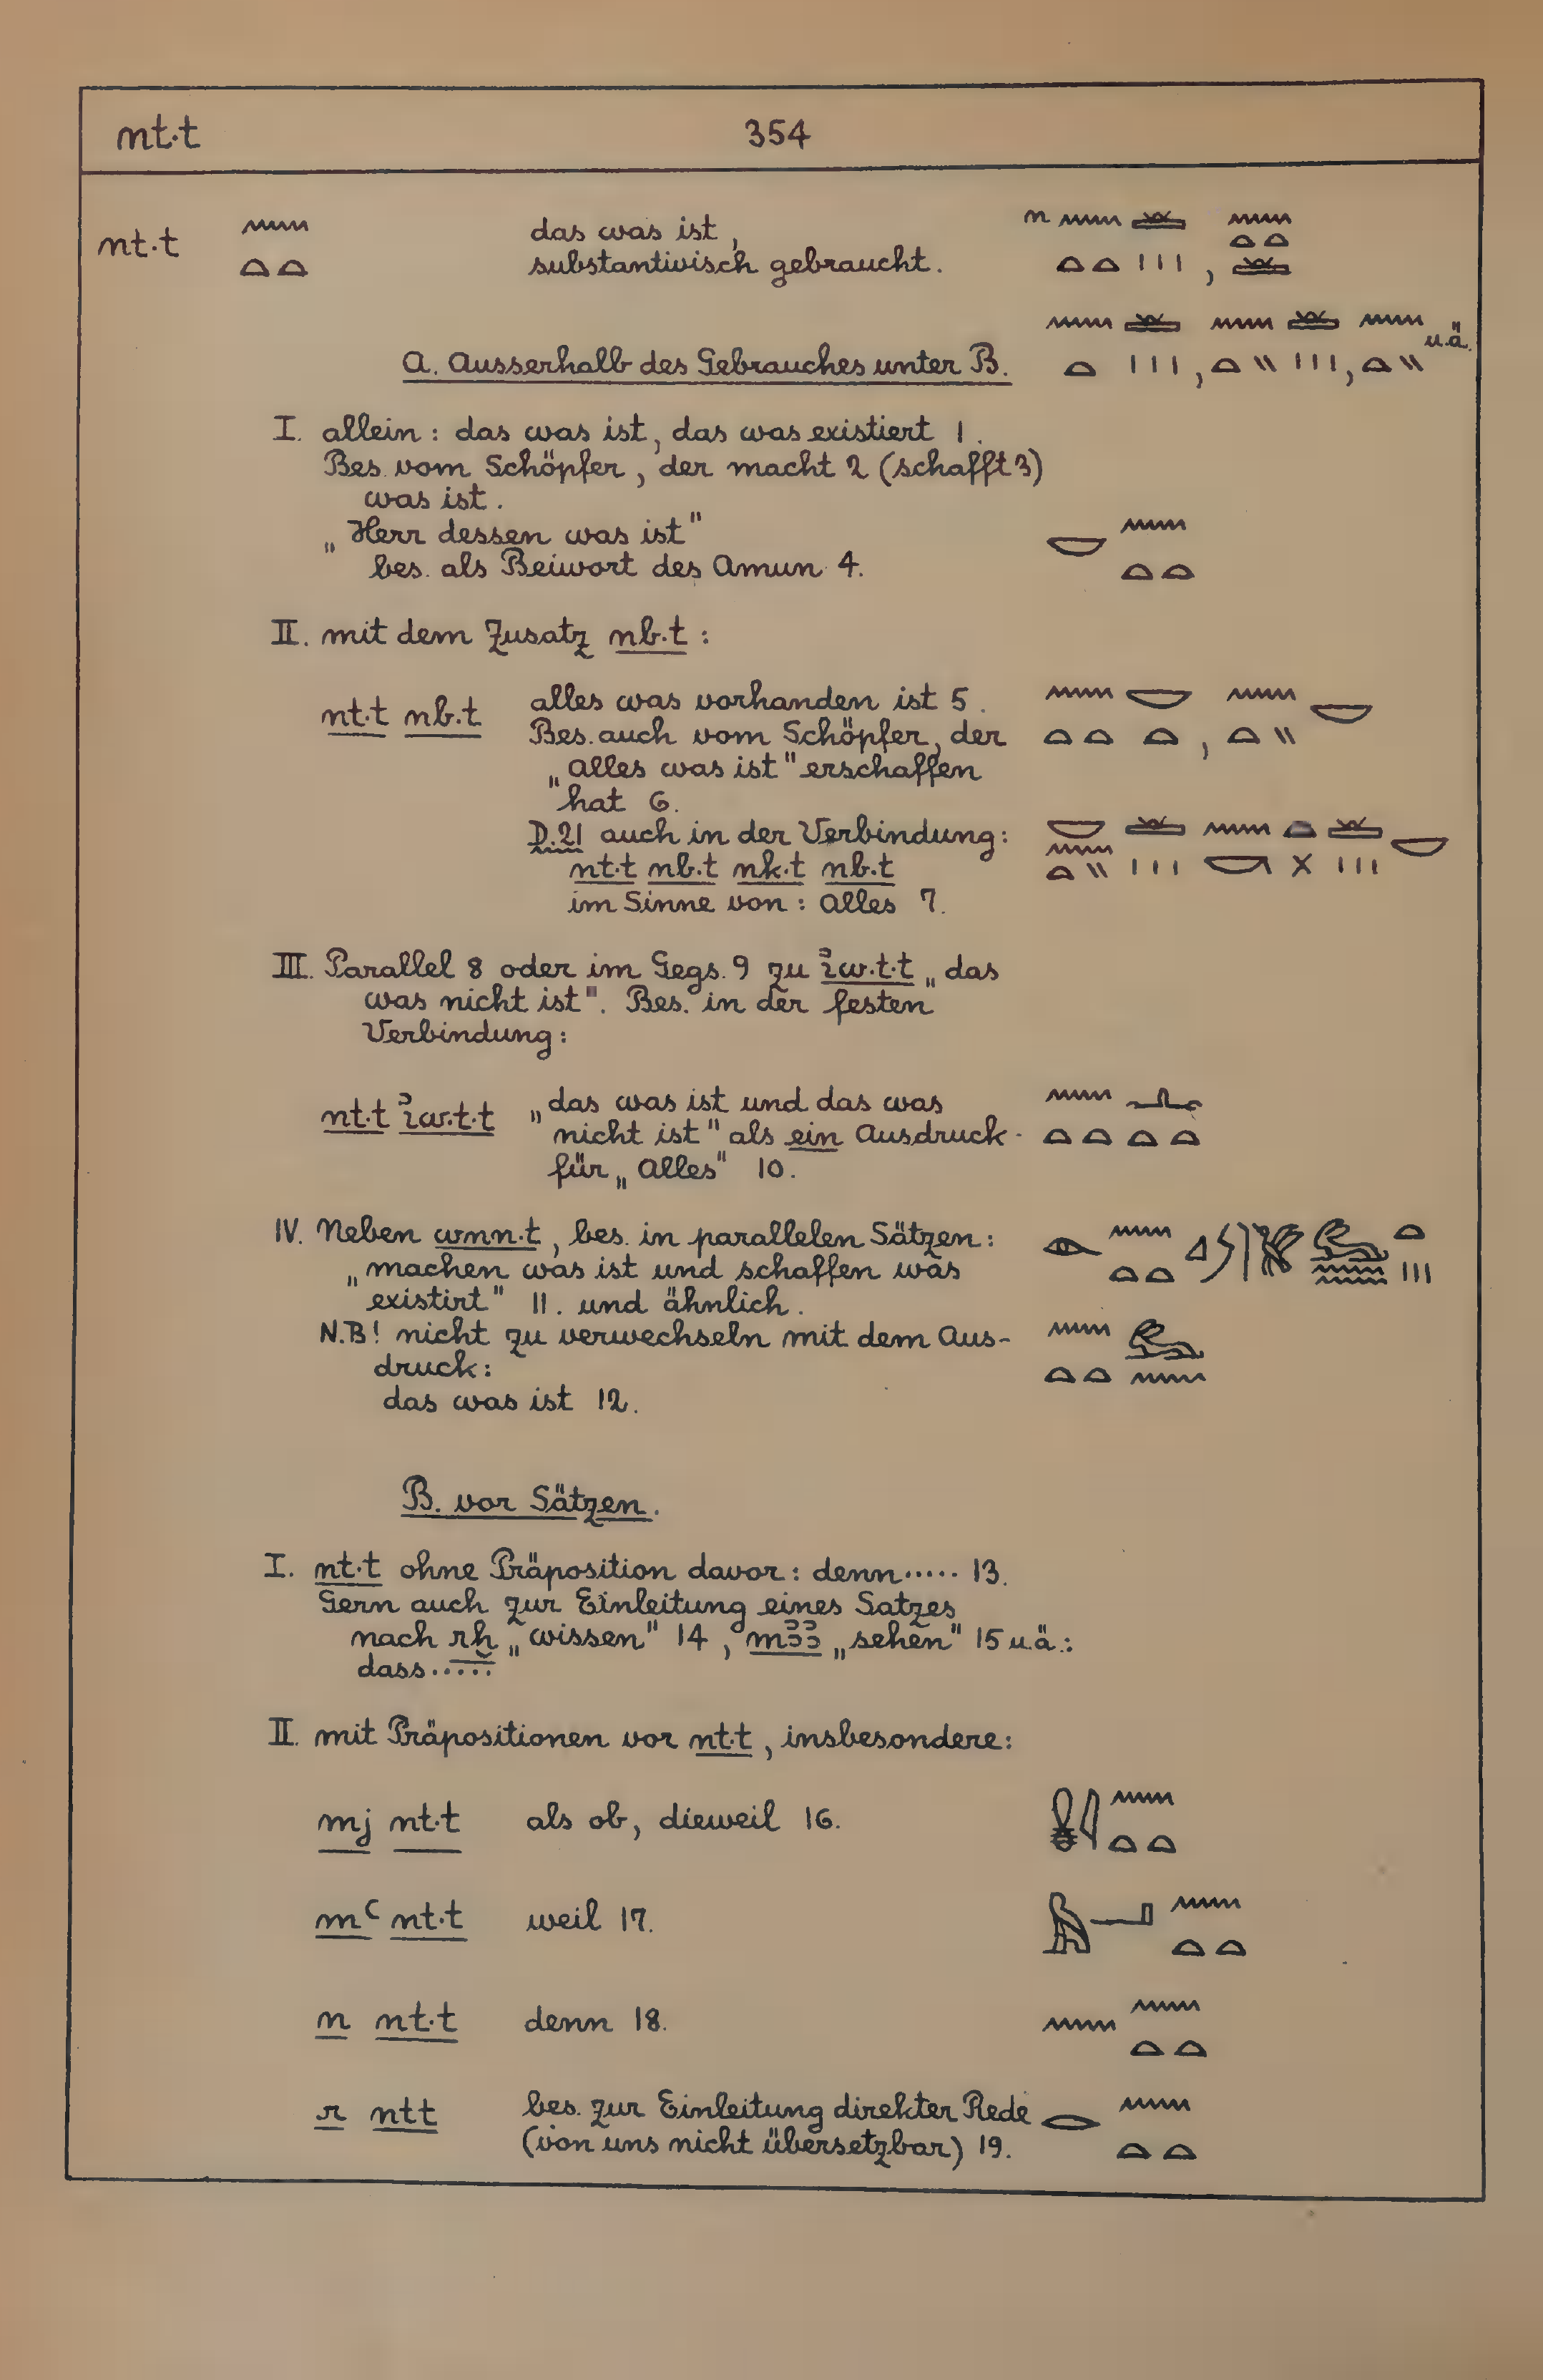 nt·t 354
nt·t 𓈖𓏏𓏏 das was ist, n 𓈖𓏏𓏏𓏛𓏥, 𓈖𓏏𓏏𓏛
substantivisch gebraucht.
A. Ausserhalb des Gebrauches unter B. 𓈖𓏏𓏛𓏥, 𓈖𓏏𓏭𓏛𓏥, 𓈖𓏏𓏭 u.ä.
I. allein: das was ist, das was existiert 1.
Bes. vom Schöpfer, der macht 2 (schafft 3)
was ist.
„Herr dessen was ist"
bes. als Beiwort des Amun 4. 𓎟𓈖𓏏𓏏
II. mit dem Zusatz nb.t:
nt·t nb.t alles was vorhanden ist 5. 𓈖𓏏𓏏𓎟𓏏, 𓈖𓏏𓏭𓎟
Bes. auch vom Schöpfer, der
„Alles was ist" erschaffen
hat 6.
D.21 auch in der Verbindung:
nt·t nb.t nk.t nb.t
im Sinne von: Alles 7.
III. Parallel 8 oder im Gegs. 9 zu ꞽw.t·t „das
was nicht ist". Bes. in der festen
Verbindung:
nt·t ꞽw.t·t „das was ist und das was 𓈖𓏏𓏏𓂜𓏏𓏏
nicht ist" als ein Ausdruck
für „Alles" 10.
IV. Neben wnn.t, bes. in parallelen Sätzen:
„machen was ist und schaffen was
existirt" 11. und ähnlich.
N.B! nicht zu verwechseln mit dem Aus-
druck: 𓈖𓏏𓏏𓃹𓈖
das was ist 12.
B. vor Sätzen.
I. nt·t ohne Präposition davor: denn..... 13.
Gern auch zur Einleitung eines Satzes
nach rḫ „wissen" 14, mꜣꜣ „sehen" 15 u.ä.:
dass.....
II. mit Präpositionen vor nt·t, insbesondere:
mj nt·t als ob, dieweil 16. 𓏇𓇋𓈖𓏏𓏏
mꜥ nt·t weil 17. 𓅓𓂝𓈖𓏏𓏏
n nt·t denn 18. 𓈖𓈖𓏏𓏏
r ntt bes. zur Einleitung direkter Rede 𓂋𓈖𓏏𓏏
(von uns nicht übersetzbar) 19.